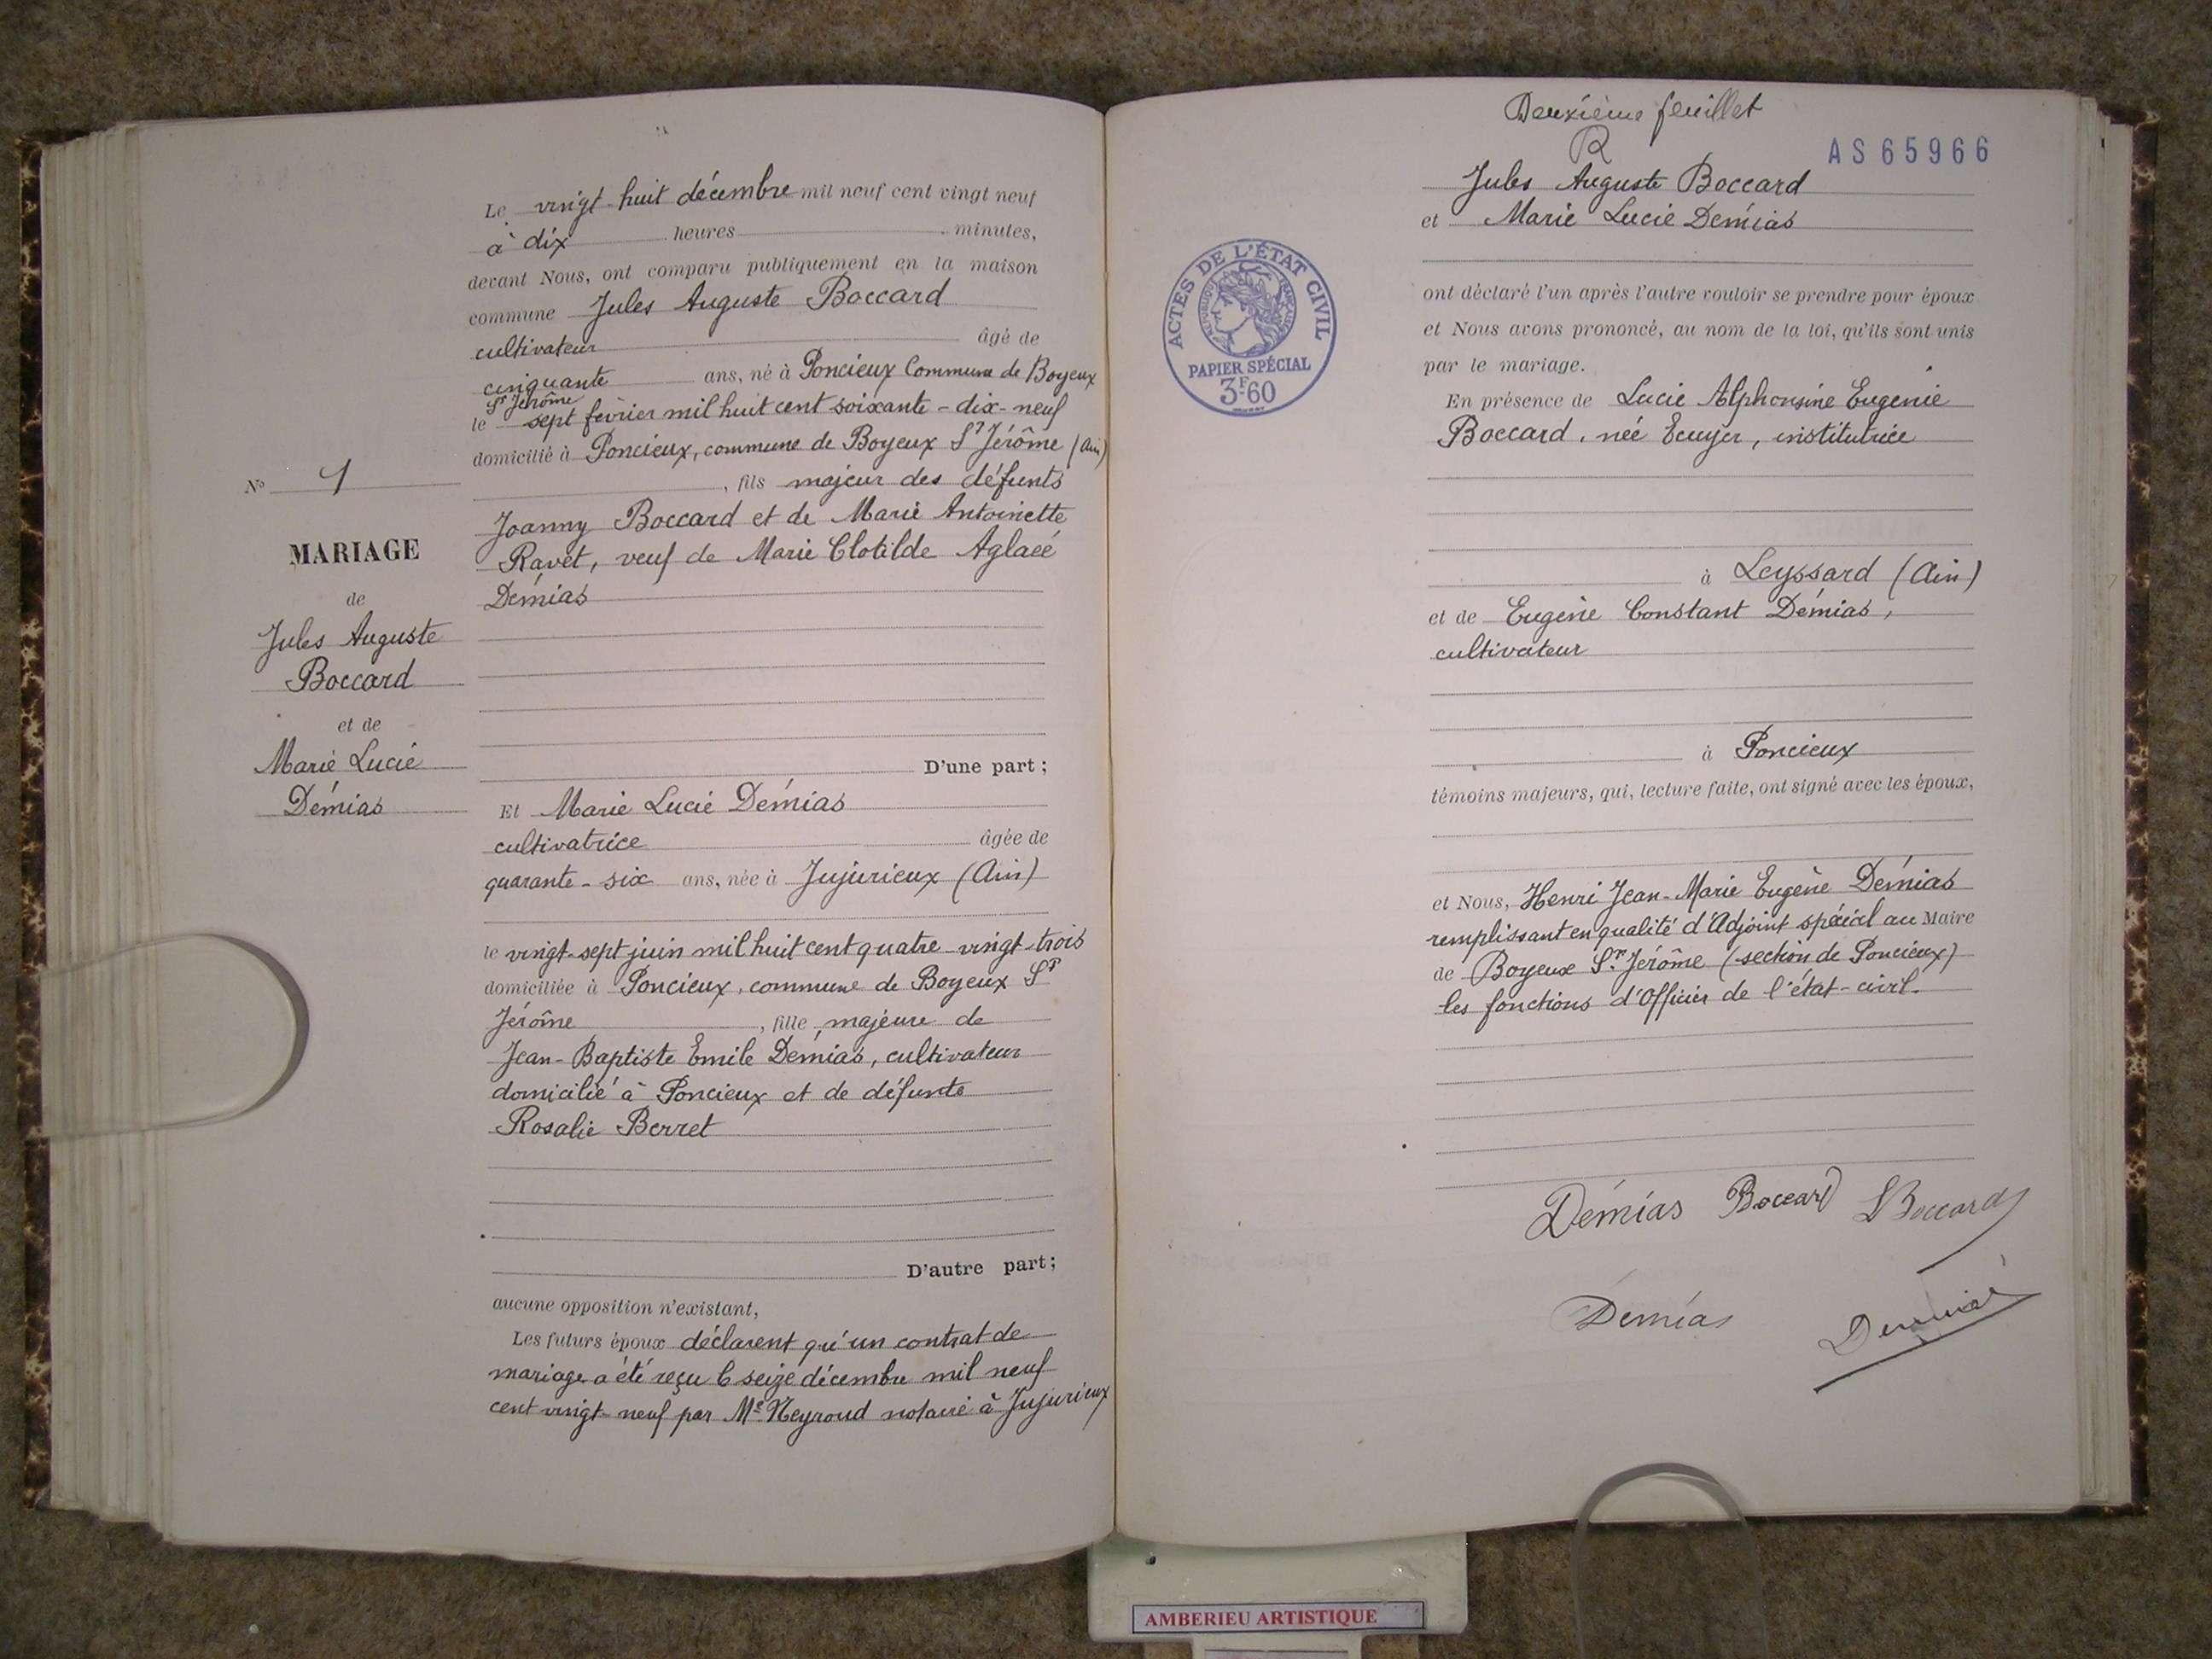 Le vingt-huit décembre mil neuf cent vingt neuf
à dix heures minutes,
devant Nous, ont comparu publiquement en la maison
commune Jules Auguste Boccard
cultivateur âgé de
cinquante ans, né à Poncieux Commune de Boyeux
St Jérôme
le sept février mil huit cent soixante-dix-neuf
domicilié à Poncieux, commune de Boyeux St Jérôme (Ain)
, fils majeur des défunts
Joanny Boccard et de Marie Antoinette
Ravet, veuf de Marie Clotilde Aglaée
Démias
D'une part;
Et Marie Lucie Démias
cultivatrice âgée de
quarante-six ans, née à Jujurieux (Ain)
le vingt-sept juin mil huit cent quatre-vingt-trois
domiciliée à Poncieux, commune de Boyeux St
Jérôme, fille majeure de
Jean-Baptiste Emile Démias, cultivateur
domicilié à Poncieux et de défunte
Rosalie Berret
D'autre part;
aucune opposition n'existant,
Les futurs époux déclarent qu'un contrat de
mariage a été reçu le seize décembre mil neuf
cent vingt-neuf par Me Neyroud notaire à Jujurieux
No 1
MARIAGE
de
Jules Auguste
Boccard
et de
Marie Lucie
Démias
Deuxième feuillet
R
AS65966
Jules Auguste Boccard
et Marie Lucie Démias
ACTES DE L'ÉTAT CIVIL
RÉPUBLIQUE FRANÇAISE
PAPIER SPÉCIAL
3F.60
ont déclaré l'un après l'autre vouloir se prendre pour époux
et Nous avons prononcé, au nom de la loi, qu'ils sont unis
par le mariage.
En présence de Lucie Alphonsine Eugénie
Boccard, née Ecuyer, institutrice
à Leyssard (Ain)
et de Eugène Constant Démias,
cultivateur
à Poncieux
témoins majeurs, qui, lecture faite, ont signé avec les époux,
et Nous, Henri Jean-Marie Eugène Démias
remplissant en qualité d'Adjoint spécial au Maire
de Boyeux St Jérôme (section de Poncieux)
les fonctions d'Officier de l'état-civil.
Démias Boccard LBoccard
Démias Demias
AMBERIEU ARTISTIQUE